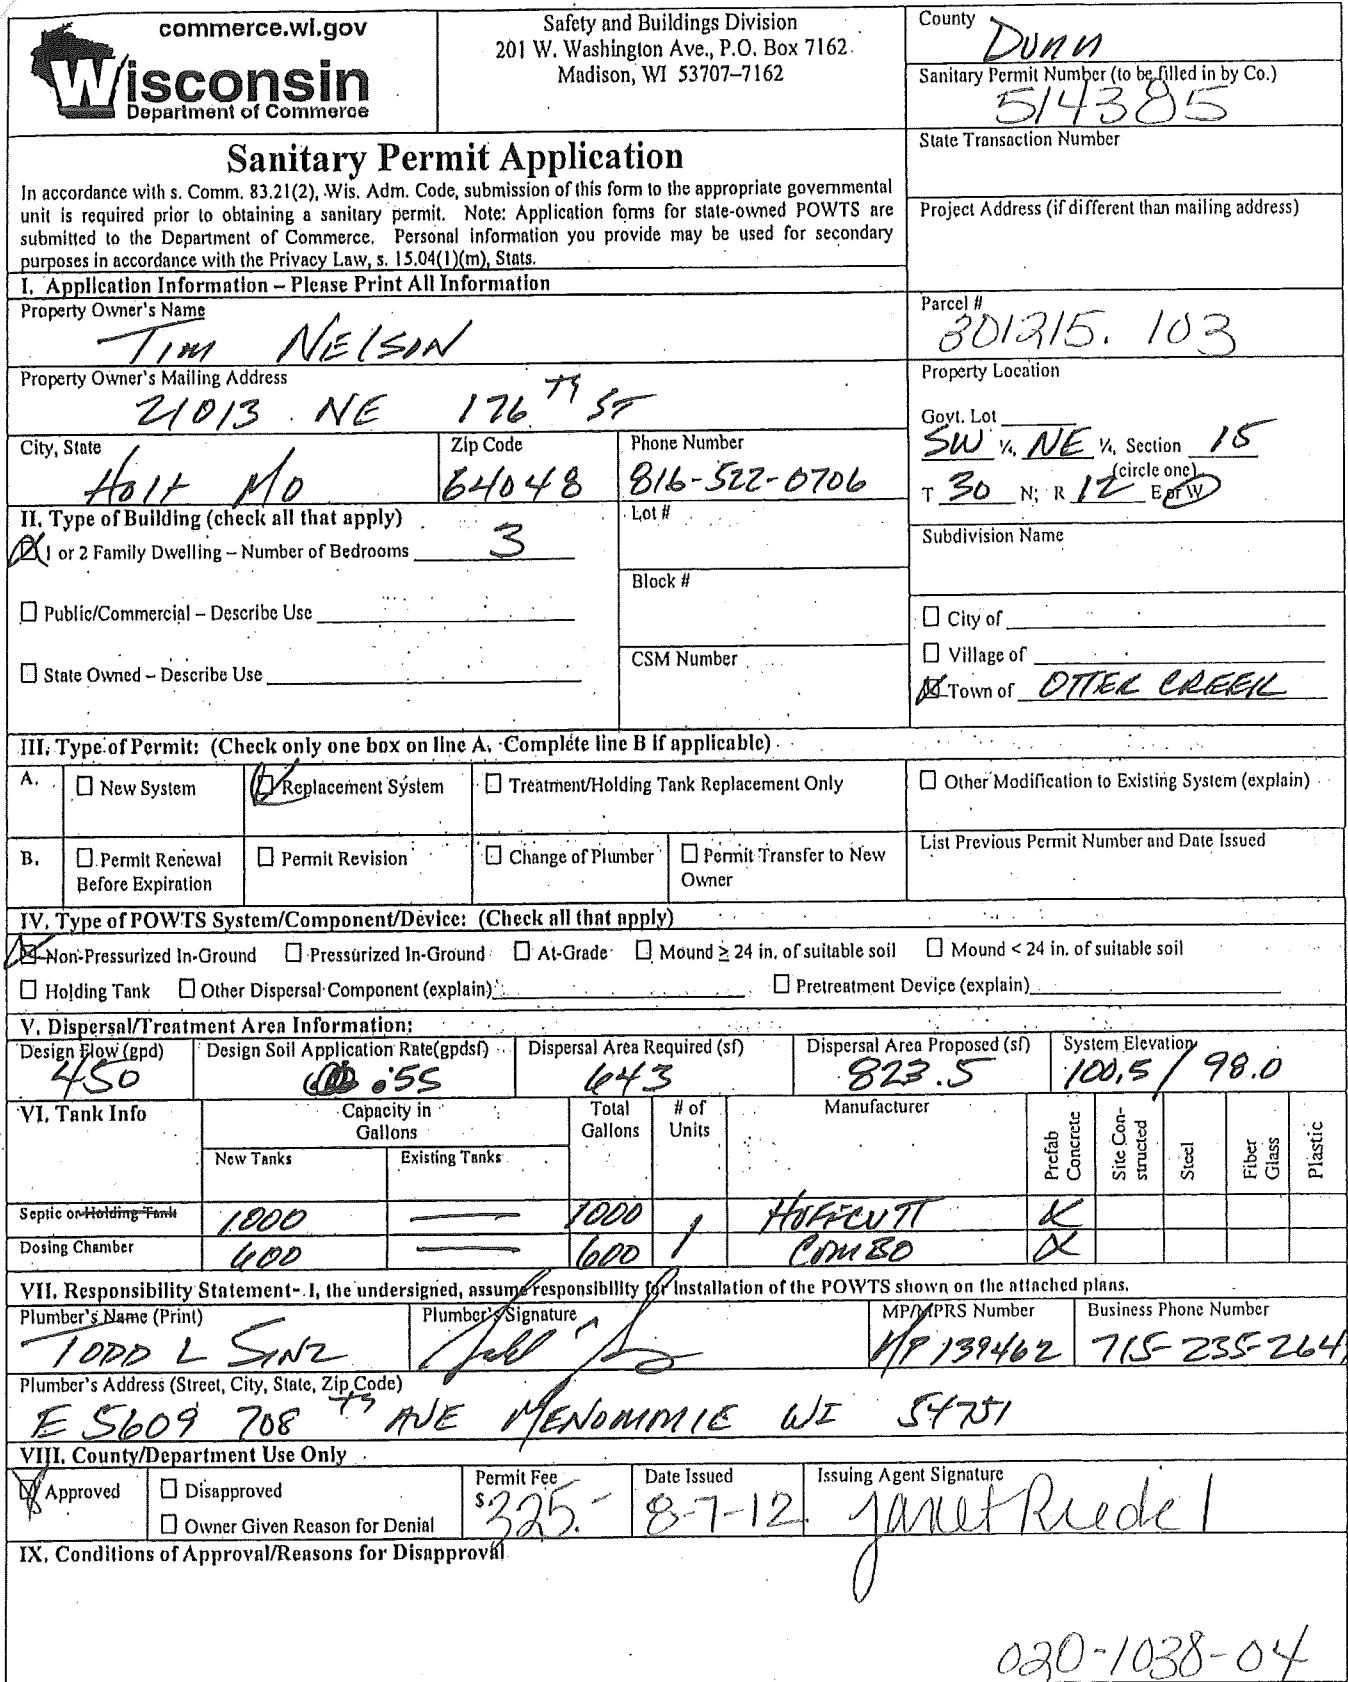 commerce.wi.gov
Wisconsin
Department of Commerce
Safety and Buildings Division
201 W. Washington Ave., P.O. Box 7162
Madison, WI 53707–7162
County
Dunn
Sanitary Permit Number (to be filled in by Co.)
514385
State Transaction Number
Sanitary Permit Application
In accordance with s. Comm. 83.21(2), Wis. Adm. Code, submission of this form to the appropriate governmental
unit is required prior to obtaining a sanitary permit. Note: Application forms for state-owned POWTS are
submitted to the Department of Commerce. Personal information you provide may be used for secondary
purposes in accordance with the Privacy Law, s. 15.04(1)(m), Stats.
Project Address (if different than mailing address)
I. Application Information – Please Print All Information
Property Owner's Name
Tim NELSON
Parcel #
301215. 103
Property Owner's Mailing Address
21013 NE 176TH ST
Property Location
Govt. Lot
SW ¼, NE ¼, Section 15
(circle one)
T 30 N; R 12 E or W
City, State
Holt Mo
Zip Code
64048
Phone Number
816-522-0706
II. Type of Building (check all that apply)
1 or 2 Family Dwelling – Number of Bedrooms 3
Public/Commercial – Describe Use
State Owned – Describe Use
Lot #
Block #
CSM Number
Subdivision Name
City of
Village of
Town of OTTER CREEK
III. Type of Permit: (Check only one box on line A. Complete line B if applicable)
A. New System Replacement System Treatment/Holding Tank Replacement Only Other Modification to Existing System (explain)
B. Permit Renewal Before Expiration Permit Revision Change of Plumber Permit Transfer to New Owner List Previous Permit Number and Date Issued
IV. Type of POWTS System/Component/Device: (Check all that apply)
Non-Pressurized In-Ground Pressurized In-Ground At-Grade Mound ≥ 24 in. of suitable soil Mound < 24 in. of suitable soil
Holding Tank Other Dispersal Component (explain) Pretreatment Device (explain)
V. Dispersal/Treatment Area Information:
Design Flow (gpd) Design Soil Application Rate(gpdsf) Dispersal Area Required (sf) Dispersal Area Proposed (sf) System Elevation
450 .55 643 823.5 100.5 / 98.0
VI. Tank Info
Capacity in Gallons
New Tanks Existing Tanks
Total Gallons
# of Units
Manufacturer
Prefab Concrete
Site Constructed
Steel
Fiber Glass
Plastic
Septic or Holding Tank 1000 — 1000 1 HUFFCUTT X
Dosing Chamber 600 — 600 COMBO X
VII. Responsibility Statement- I, the undersigned, assume responsibility for installation of the POWTS shown on the attached plans.
Plumber's Name (Print)
TODD L SINZ
Plumber's Signature
MP/MPRS Number
MP 139462
Business Phone Number
715-235-264
Plumber's Address (Street, City, State, Zip Code)
E 5609 708 TH AVE MENOMMIE WI 54751
VIII. County/Department Use Only
Approved
Disapproved
Owner Given Reason for Denial
Permit Fee
$325.-
Date Issued
8-7-12
Issuing Agent Signature
Janet Riedel
IX. Conditions of Approval/Reasons for Disapproval
020-1038-04